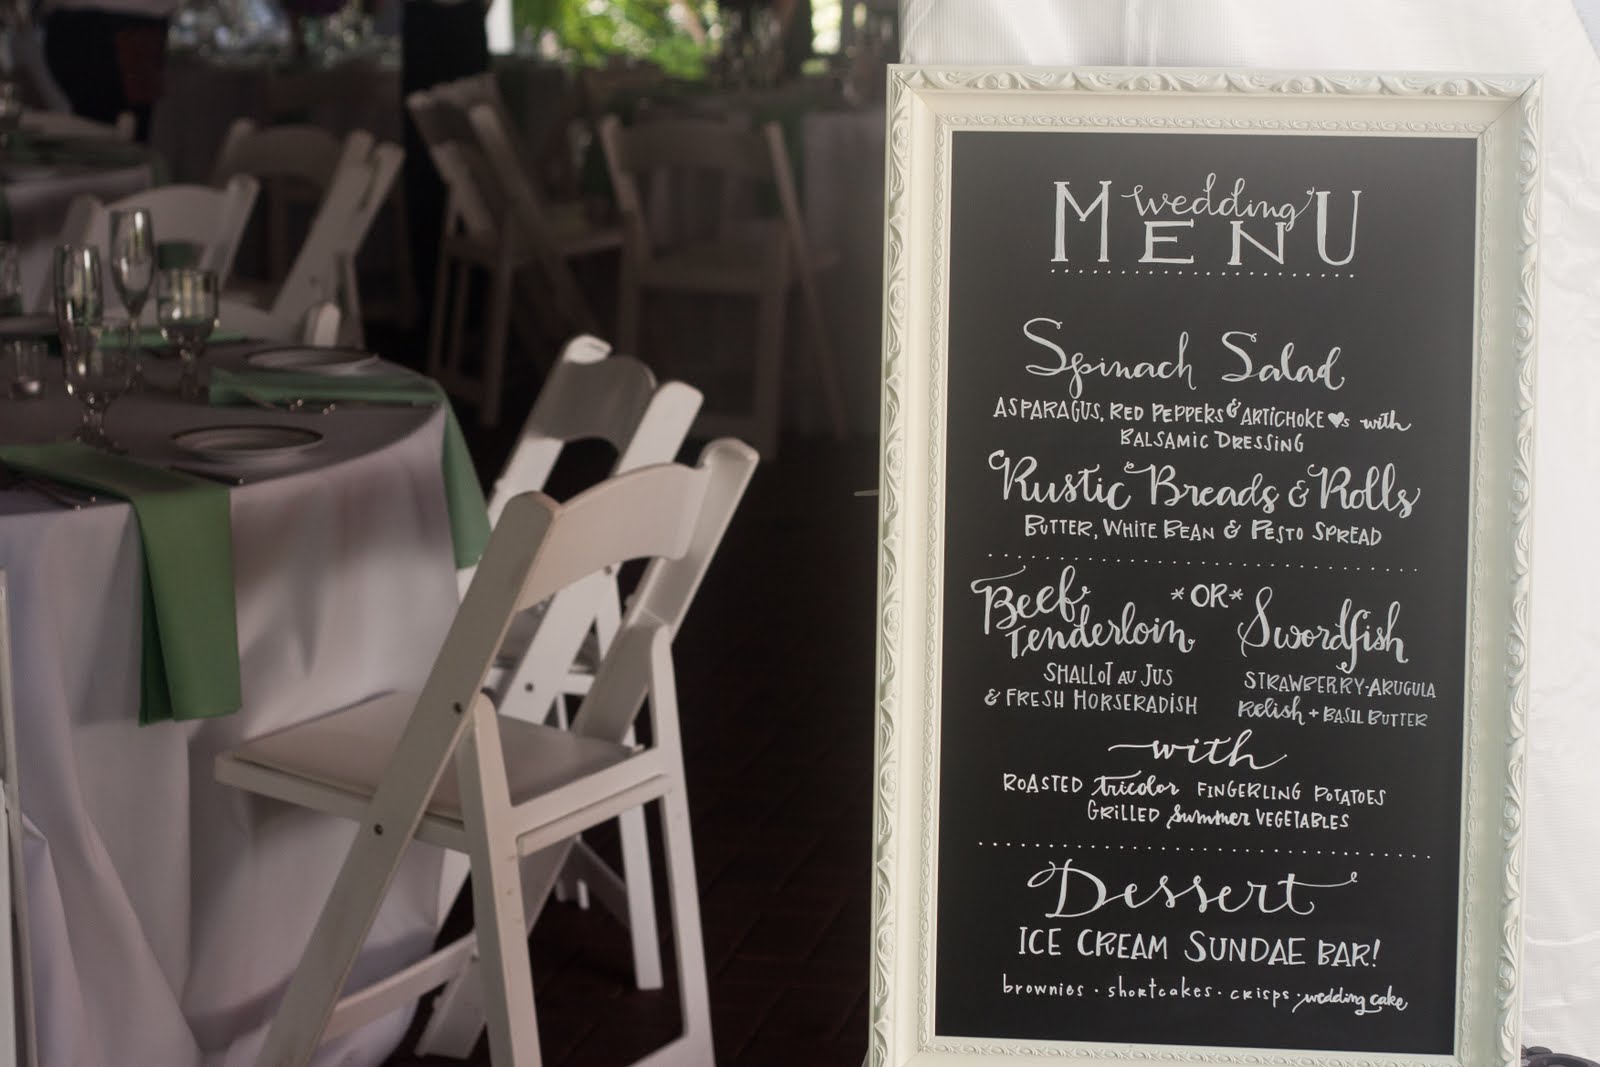 wedding
MENU
Spinach Salad
ASPARAGUS, RED PEPPERS & ARTICHOKE ♥s with
BALSAMIC DRESSING
Rustic Breads & Rolls
BUTTER, WHITE BEAN & PESTO SPREAD
Beef *OR* Swordfish
Tenderloin
SHALLOT AU JUS
& FRESH HORSERADISH
STRAWBERRY-ARUGULA
Relish + BASIL BUTTER
with
ROASTED tricolor FINGERLING POTATOES
GRILLED summer VEGETABLES
Dessert
ICE CREAM SUNDAE BAR!
brownies · shortcakes · crisps · wedding cake